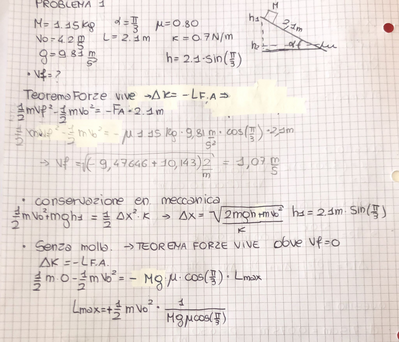 PROBLEMA 1
M = 1.15 kg α = π/3 μ = 0.80
V0 = 4.2 m/s L = 2.1m K = 0.7 N/m
g = 9.81 m/s² h = 2.1 · sin(π/3)
• Vf = ?
M
h1
2,1m
h
Teorema Forze vive → ΔK = -L F.A ⇒
1/2 mVf² - 1/2 mV0² = -FA · 2.1m
1/2 mVf² - 1/2 mV0² = - μ 1.15 kg · 9,81 m/s² · cos(π/3) · 2,1m
⇒ Vf = √(-9,47646 + 10,143) 2/m = 1,07 m/s
• conservazione en. meccanica
1/2 mV0² + mgh1 = 1/2 Δx² · K → Δx = √(2mgh + mV0²)/K h1 = 2.1m · sin(π/3)
• Senza molla → TEOREMA FORZE VIVE dove Vf = 0
ΔK = -L F.A.
1/2 m 0 - 1/2 mV0² = - Mg μ · cos(π/3) · Lmax
Lmax = + 1/2 mV0² · 1/(Mg μ cos(π/3))